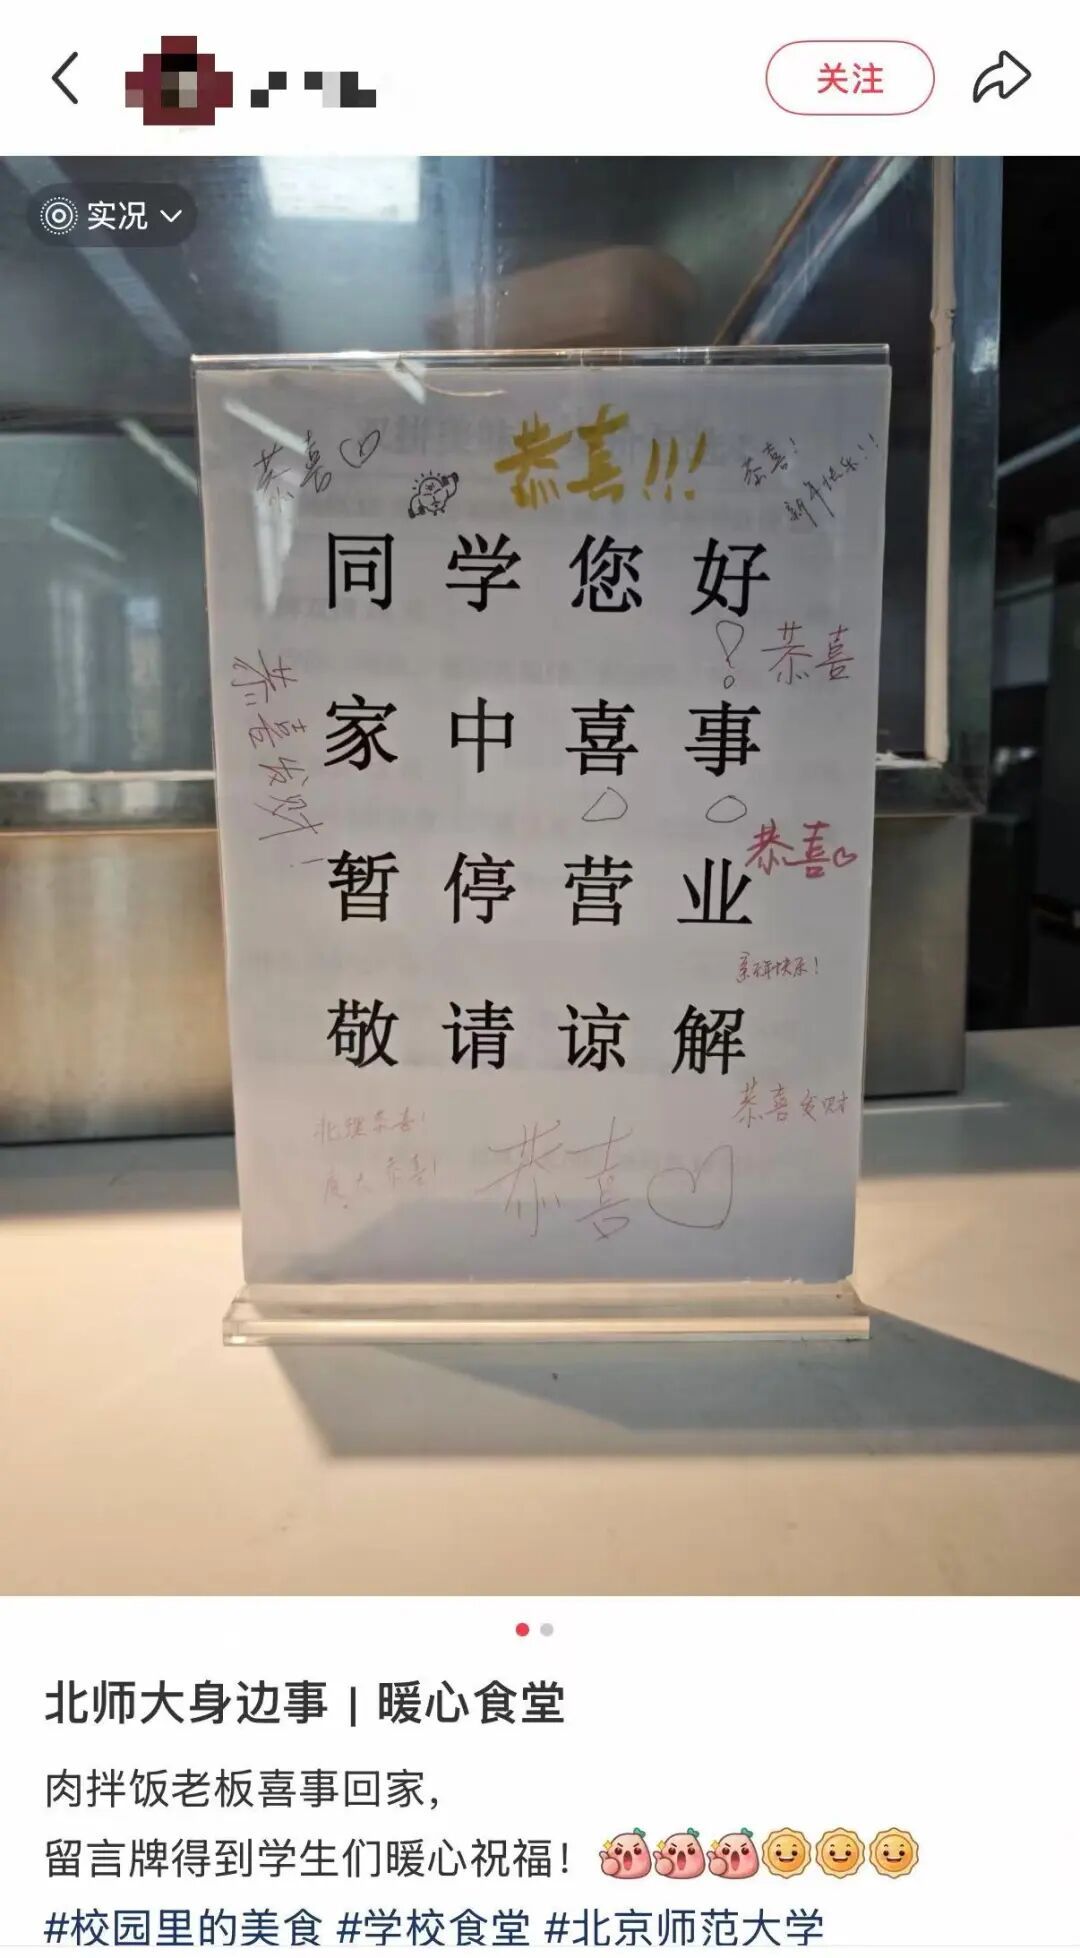 关注
实况
恭喜
恭喜!!!
恭喜!
新年快乐!!
同学您好
恭喜
家中喜事
恭喜发财!
恭喜
暂停营业
新年快乐!
敬请谅解
恭喜发财
北理恭喜!
恭喜!
恭喜
北师大身边事 | 暖心食堂
肉拌饭老板喜事回家，
留言牌得到学生们暖心祝福！
#校园里的美食 #学校食堂 #北京师范大学